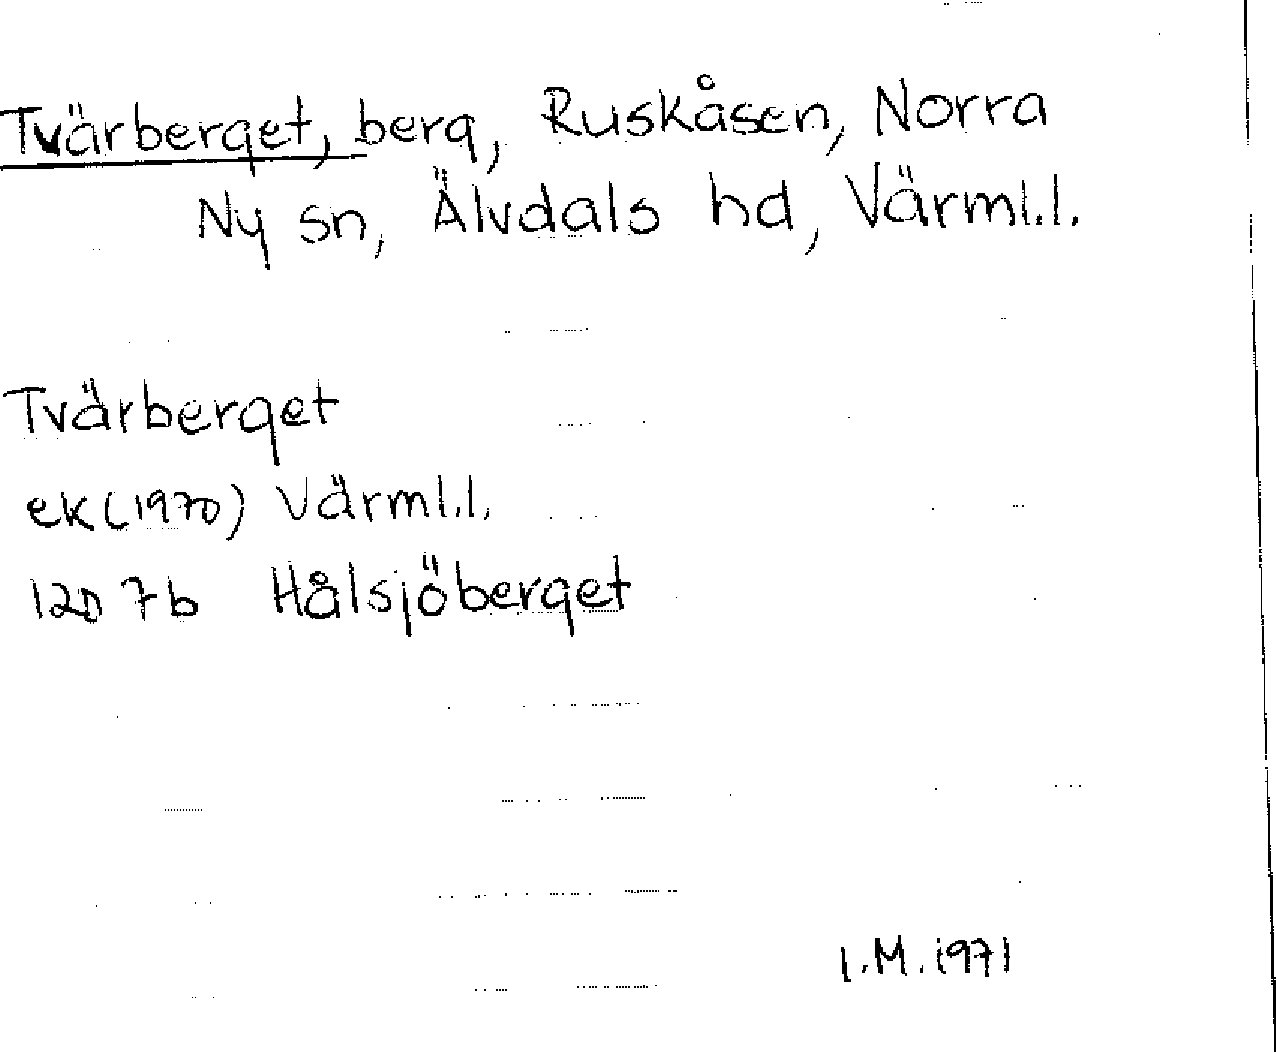 Tvärberget, berg, Ruskåsen, Norra
Ny sn, Älvdals hd, Värml.l.
Tvärberget
ek (1970) Värml.l.
12D 7b Hålsjöberget
I.M. 1971